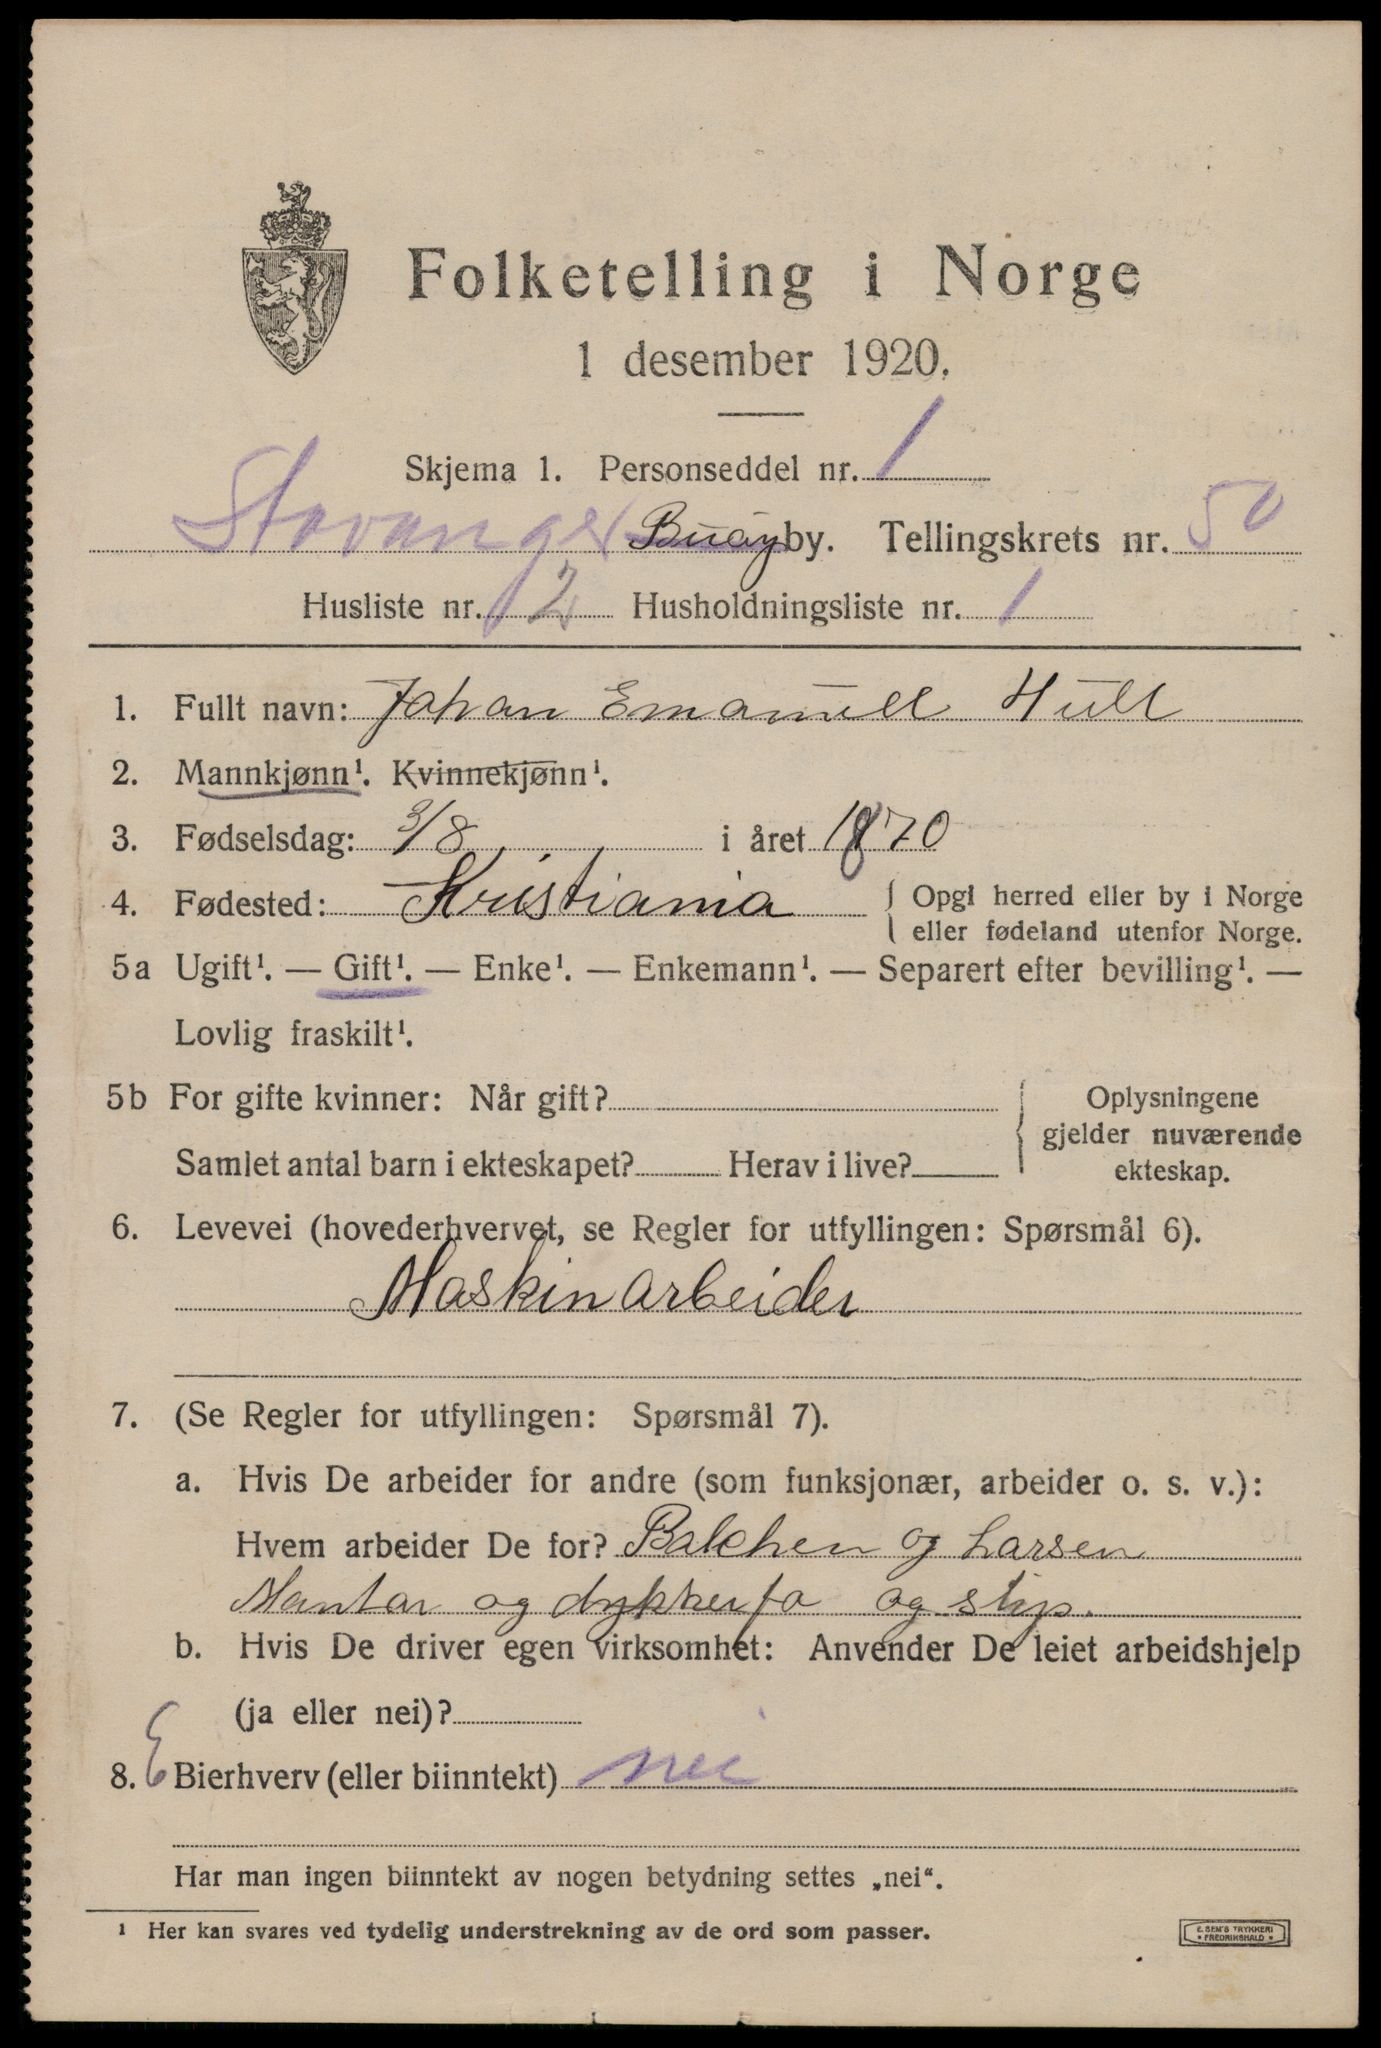 Folketelling i Norge
1 desember 1920.
Skjema 1. Personseddel nr. 1
Stavanger Buøy by. Tellingskrets nr. 50
Husliste nr. 12 Husholdningsliste nr. 1
1. Fullt navn: Johan Emanuell Hull
2. Mannkjønn¹. Kvinnekjønn¹.
3. Fødselsdag: 3/8 i året 1870
4. Fødested: Kristiania { Opgi herred eller by i Norge
eller fødeland utenfor Norge.
5a Ugift¹. — Gift¹. — Enke¹. — Enkemann¹. — Separert efter bevilling¹. —
Lovlig fraskilt¹.
5b For gifte kvinner: Når gift? { Oplysningene
gjelder nuværende
Samlet antal barn i ekteskapet? Herav i live? ekteskap.
6. Levevei (hovederhvervet, se Regler for utfyllingen: Spørsmål 6).
Maskinarbeider
7. (Se Regler for utfyllingen: Spørsmål 7).
a. Hvis De arbeider for andre (som funksjonær, arbeider o. s. v.):
Hvem arbeider De for? Balchen og Larsen
og dykkerfo og
b. Hvis De driver egen virksomhet: Anvender De leiet arbeidshjelp
(ja eller nei)?
8. E Bierhverv (eller biinntekt) nei
Har man ingen biinntekt av nogen betydning settes „nei“.
¹ Her kan svares ved tydelig understrekning av de ord som passer.
E. SEM'S TRYKKERI
• FREDRIKSHALD •